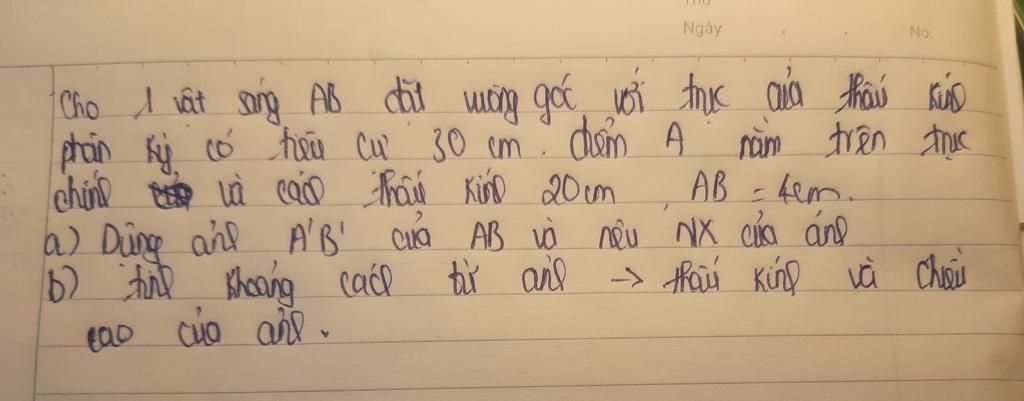 Thứ
Ngày
No.
Cho 1 vật sáng AB đặt vuông góc với trục của thấu kính
phân kỳ có tiêu cự 30 cm. điểm A nằm trên trục
chính và cách thấu kính 20cm, AB = 4cm.
a) Dựng ảnh A'B' của AB và nêu NX của ảnh
b) tính khoảng cách từ ảnh → thấu kính và chiều
cao của ảnh.